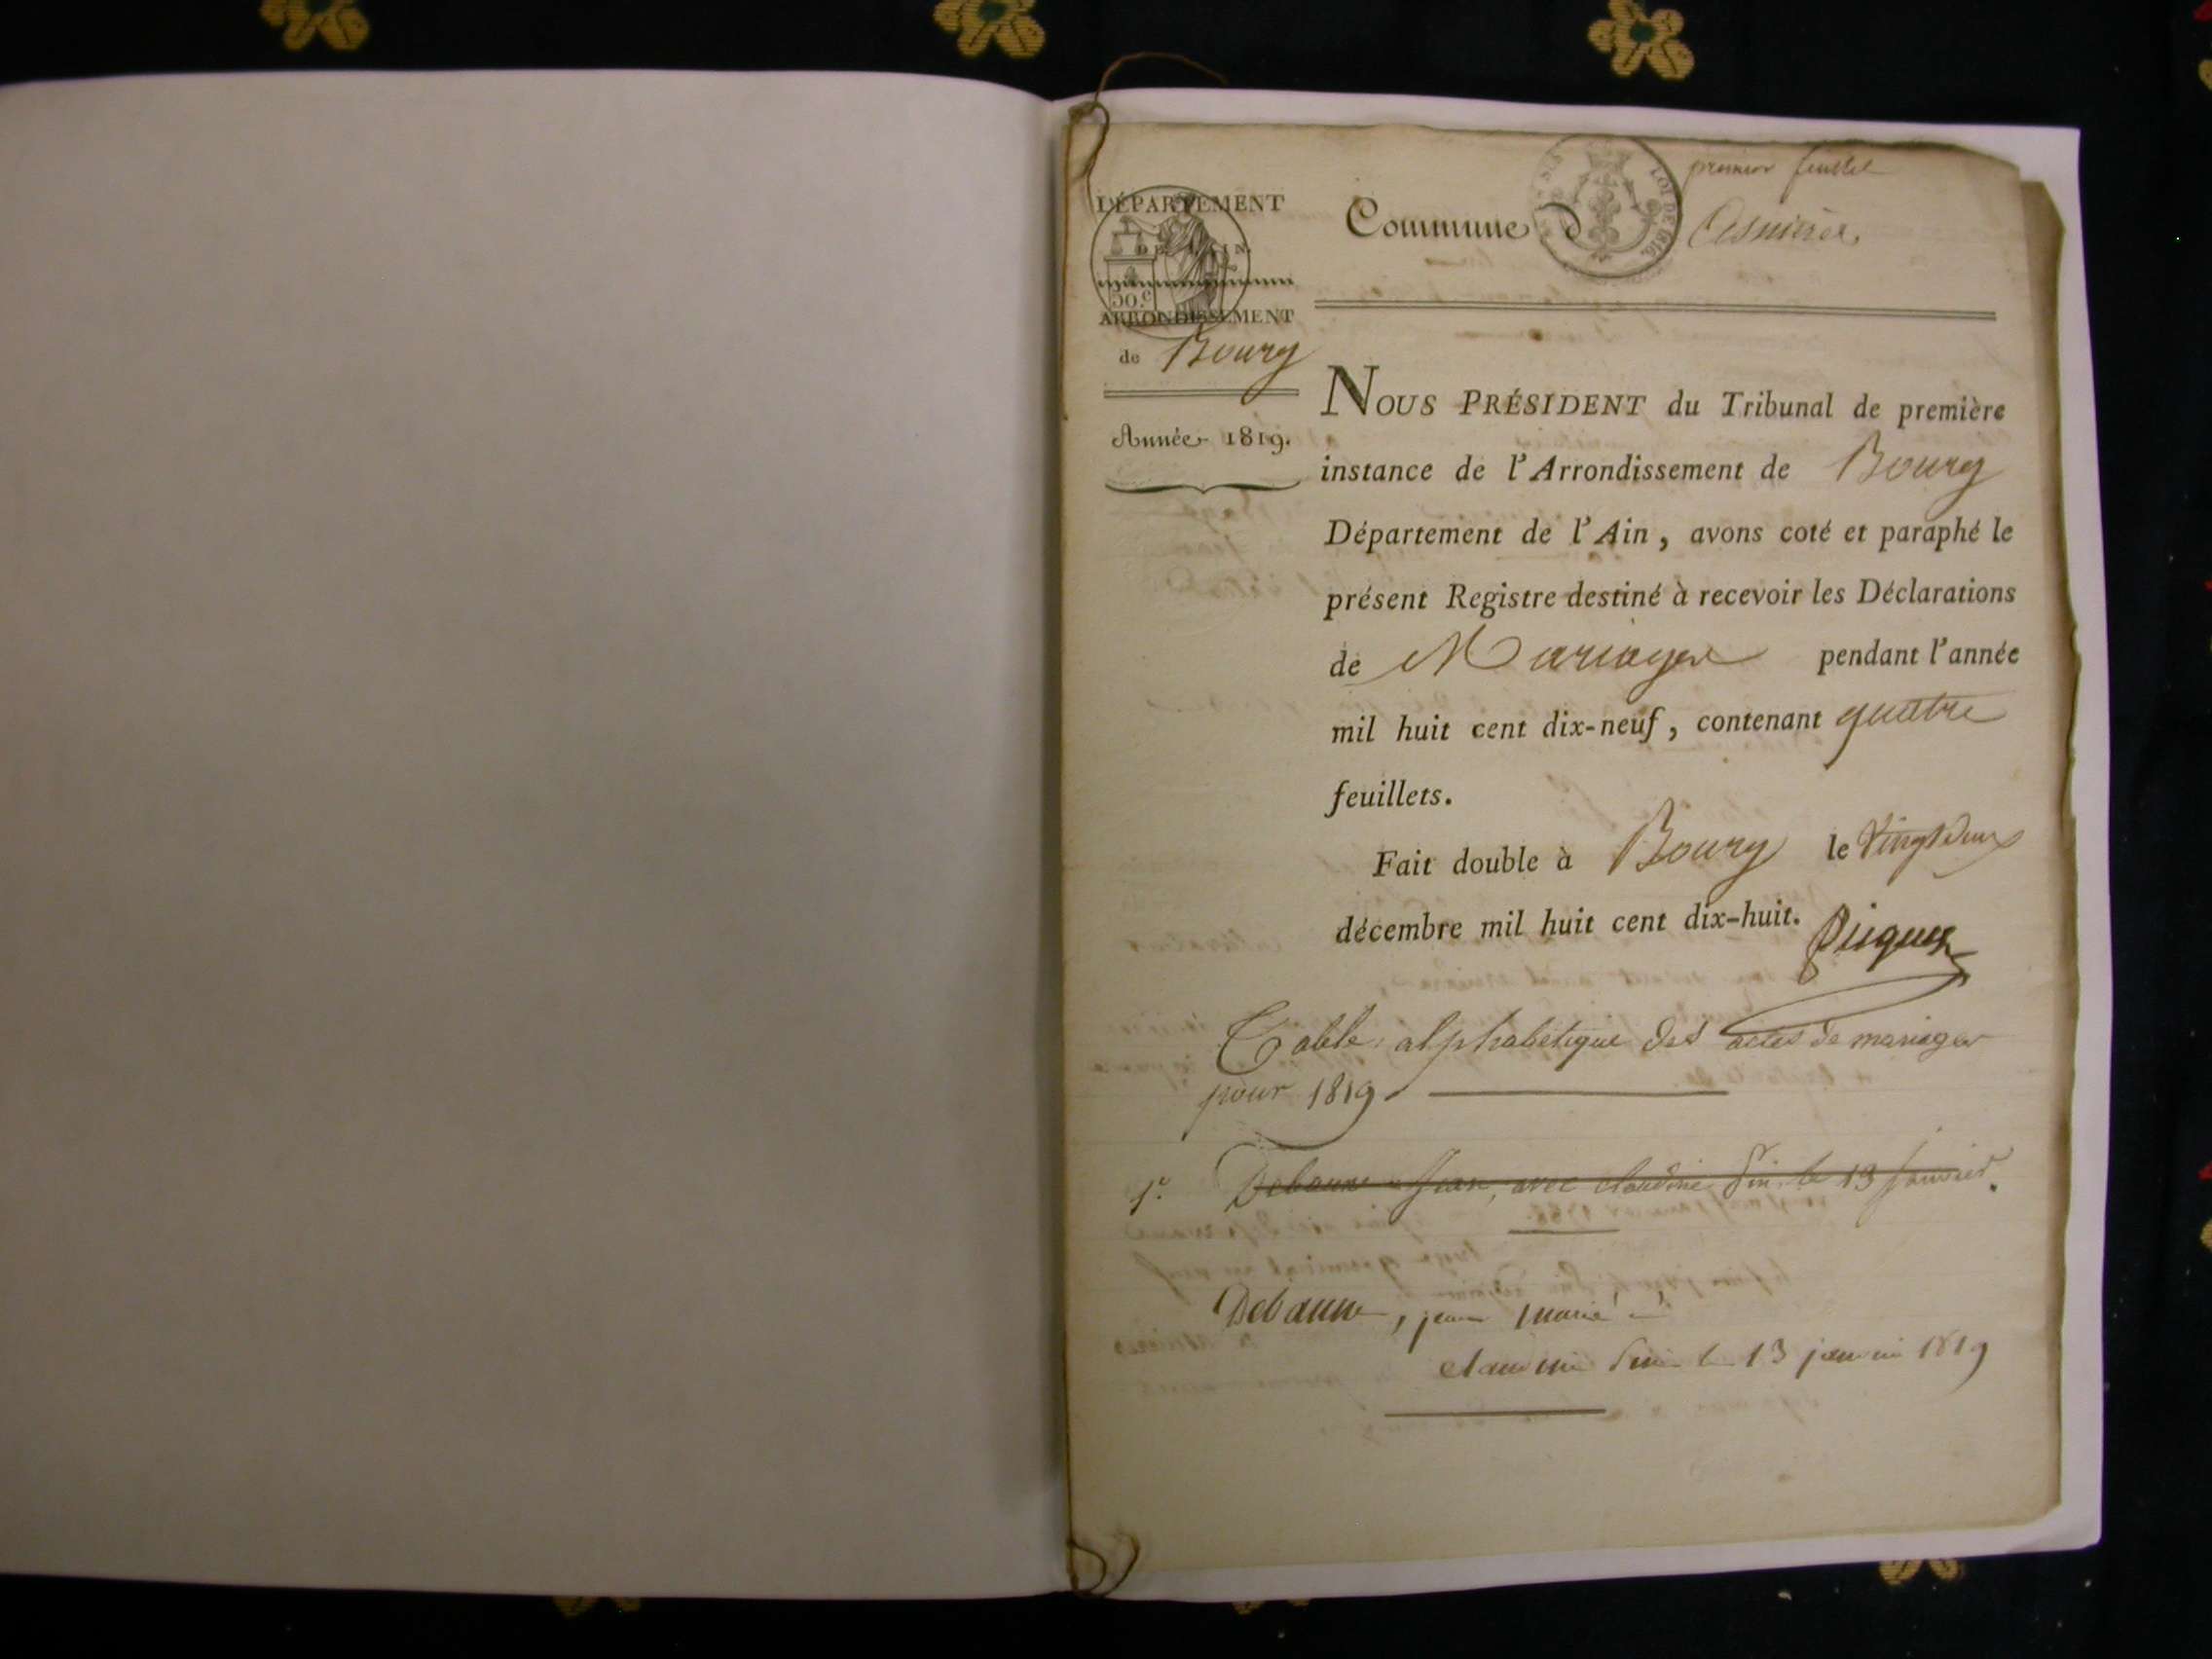 premier feuillet
DÉPARTEMENT
DE L'AIN.
50.c
ARRONDISSEMENT
de Bourg
Année 1819.
LOI DE 1816
Commune d Asnières
NOUS PRÉSIDENT du Tribunal de première
instance de l'Arrondissement de Bourg
Département de l'Ain, avons coté et paraphé le
présent Registre destiné à recevoir les Déclarations
de Mariages pendant l'année
mil huit cent dix-neuf, contenant quatre
feuillets.
Fait double à Bourg le Vingt deux
décembre mil huit cent dix-huit.
Table alphabetique des actes de mariages
pour 1819
1.º Debaune Jean, avec claudine le 13 Janvier.
Debaune, jean marié à
claudine le 13 janvier 1819